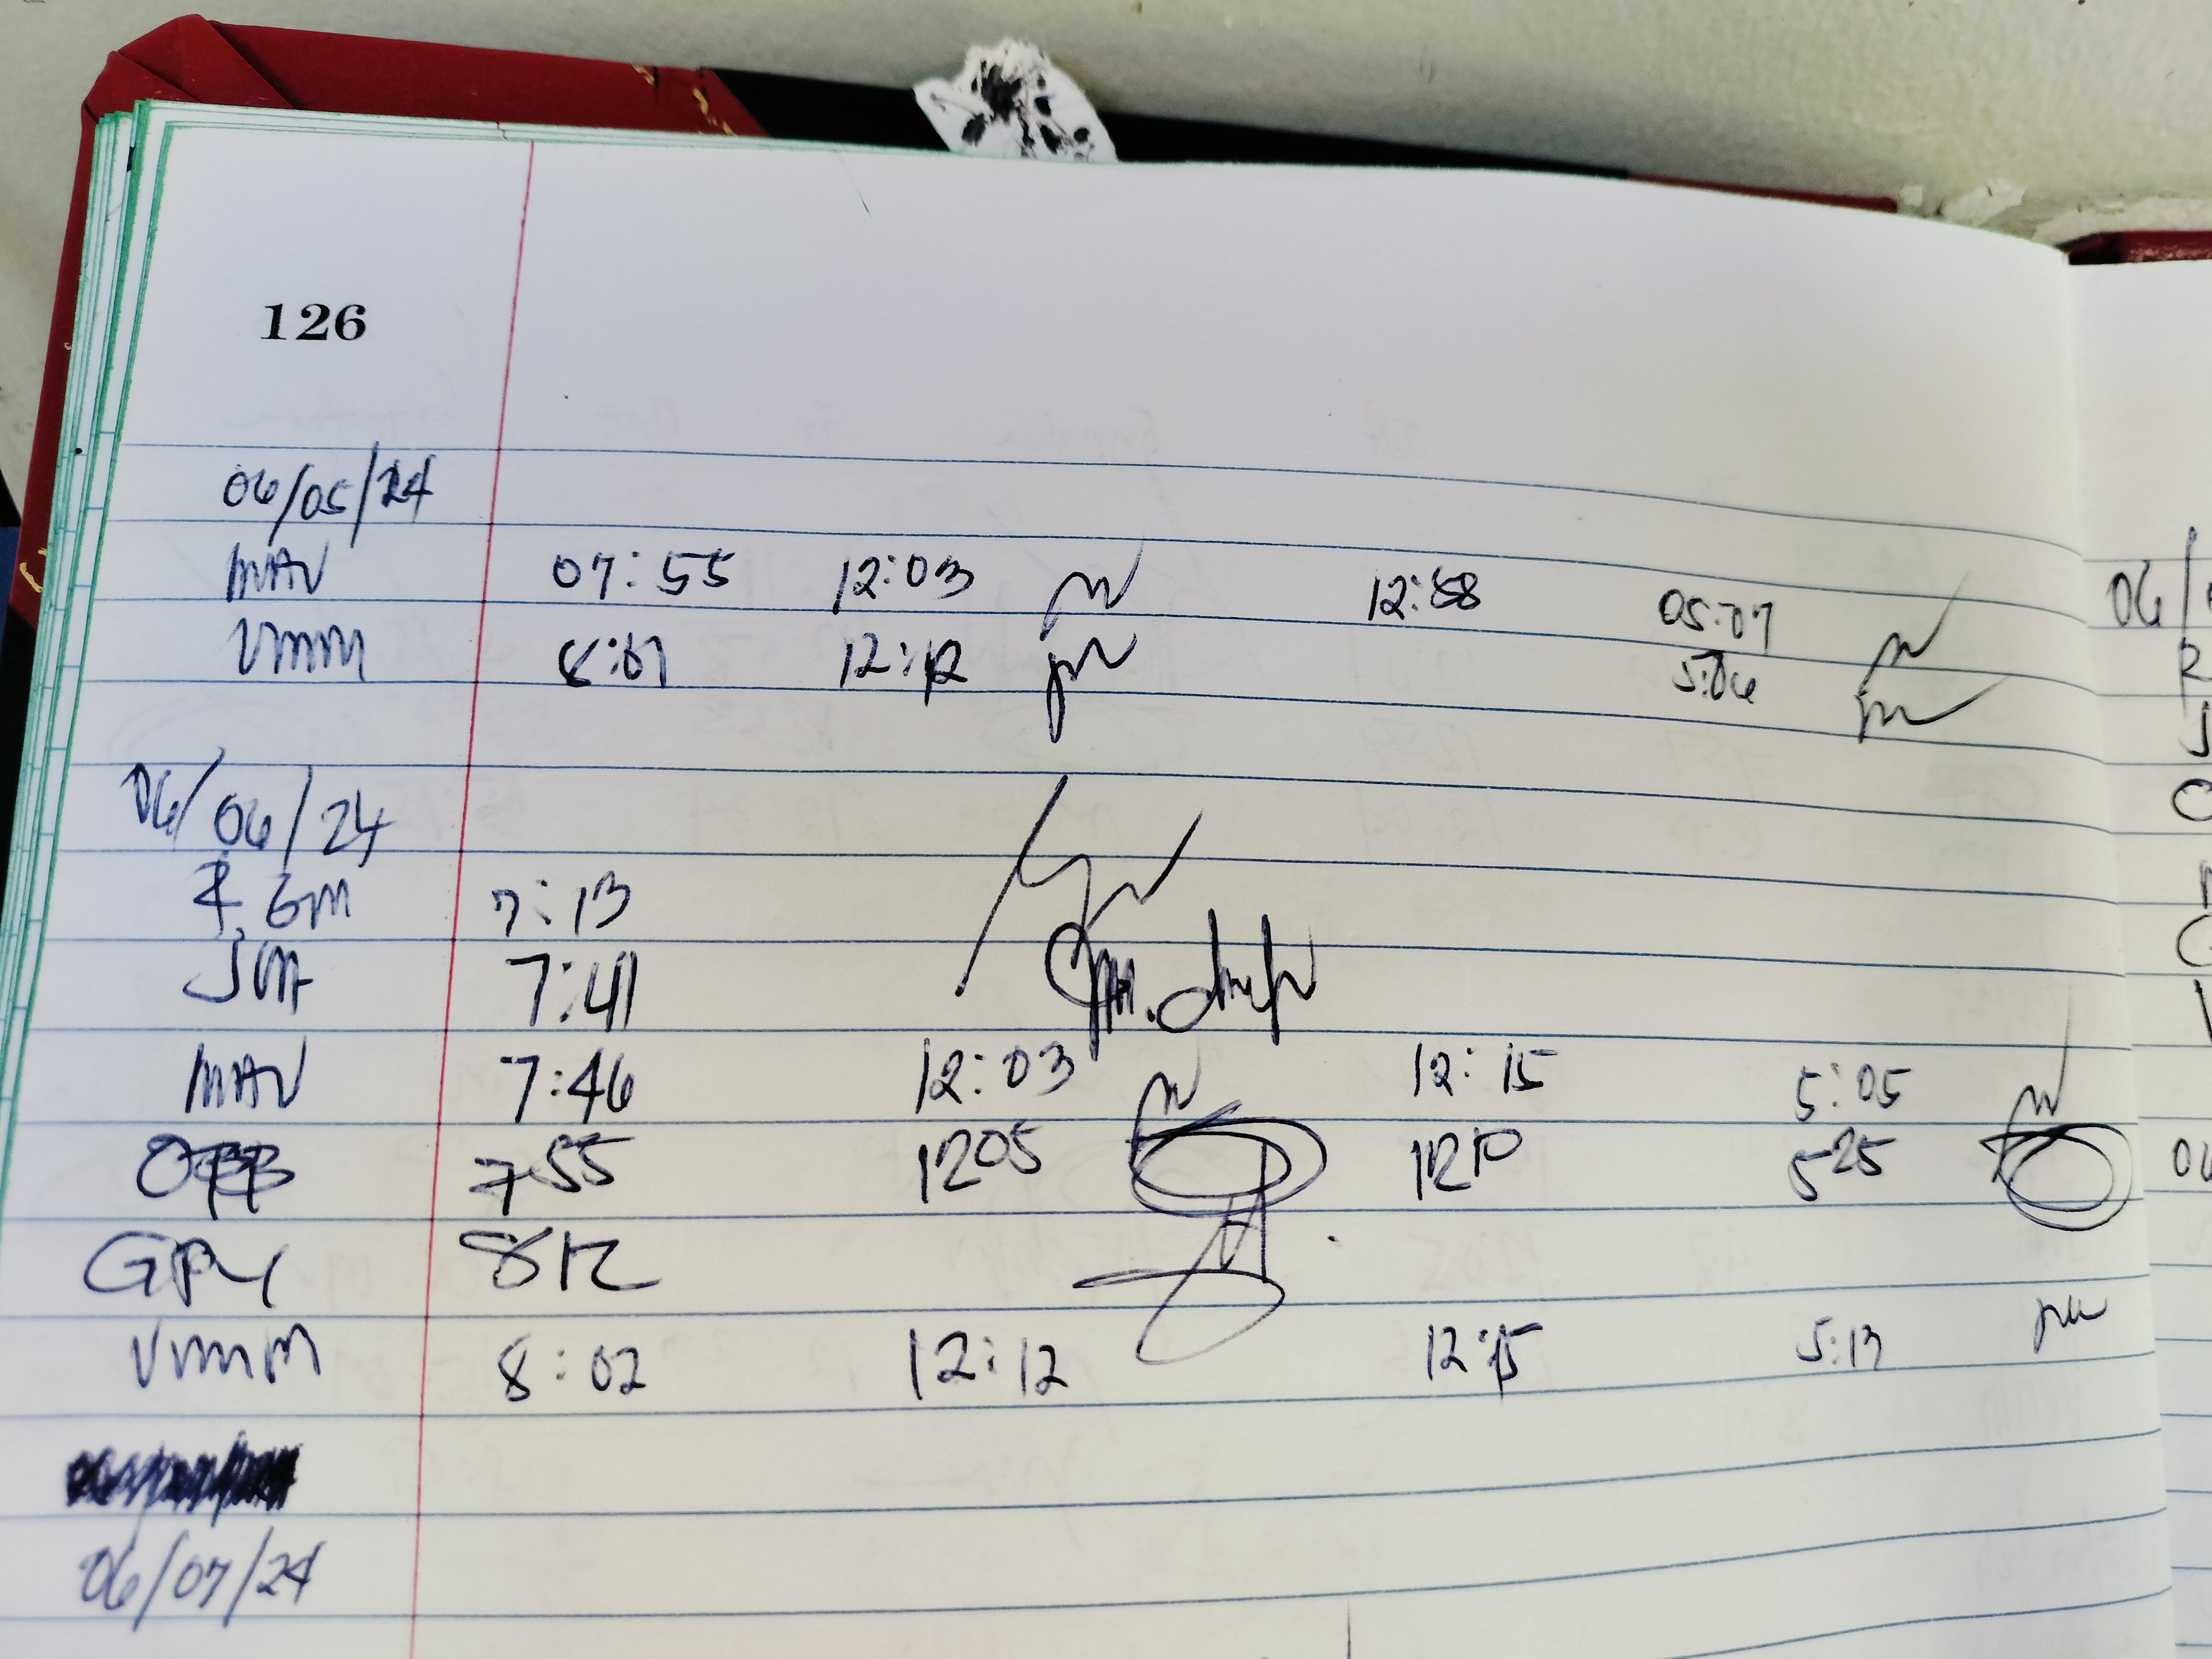 126
06/05/24
MAV 07:55 12:03 12:58 05:07
VMM 8:01 12:12 5:06
06/06/24
GM 7:13
JVA 7:41
MAV 7:46 12:03 12:15 5:05
OBB 755 1205 1210 525
GPY 812
VMM 8:02 12:12 12:15 5:13
06/07/24